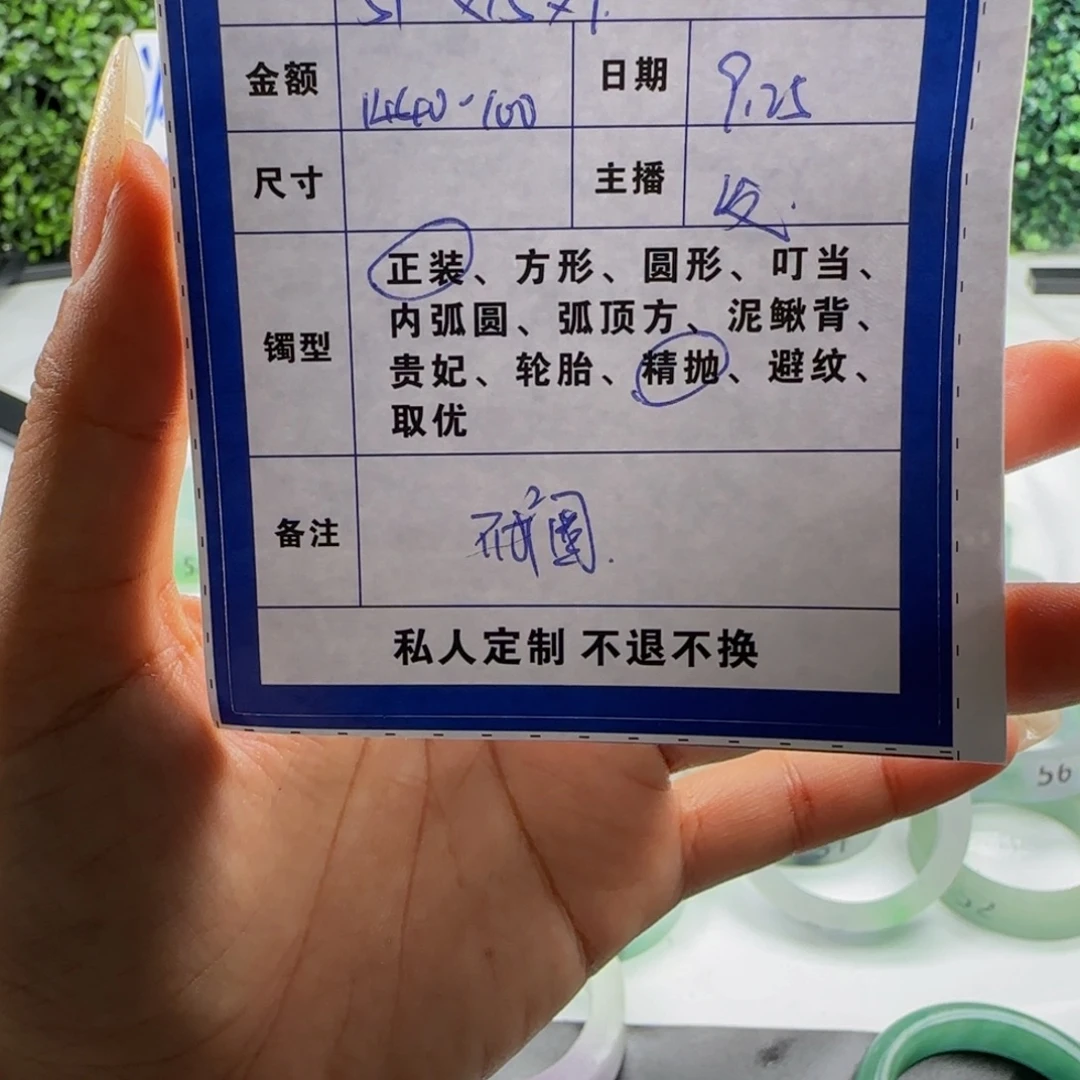 金额 1440-100 日期 9.25
尺寸 主播
镯型 正装、方形、圆形、叮当、
内弧圆、弧顶方、泥鳅背、
贵妃、轮胎、精抛、避纹、
取优
备注
私人定制 不退不换
56
52